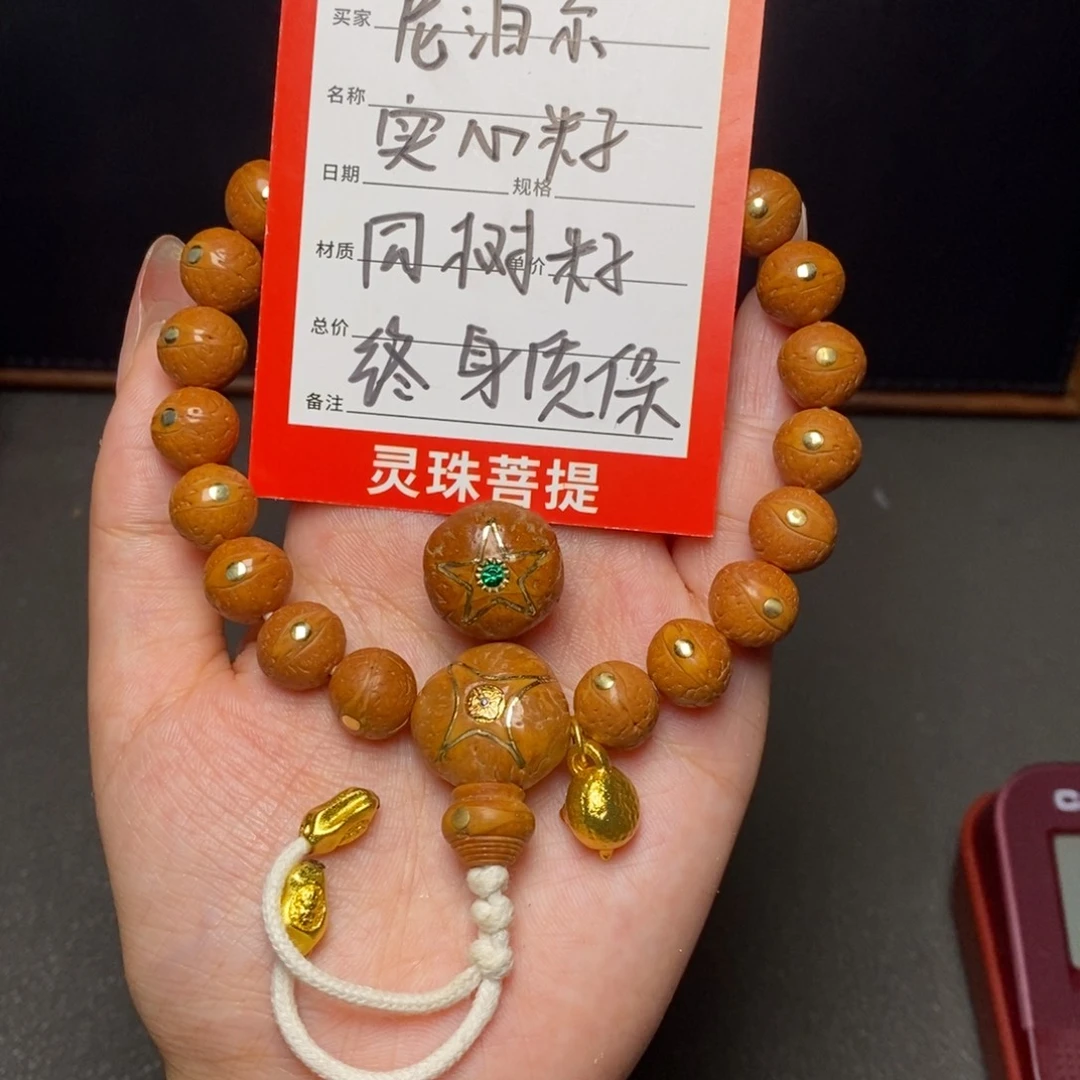 买家 尼泊尔
名称 实心籽
日期 规格
材质 同树籽 单价
总价 终身质保
备注
灵珠菩提
C